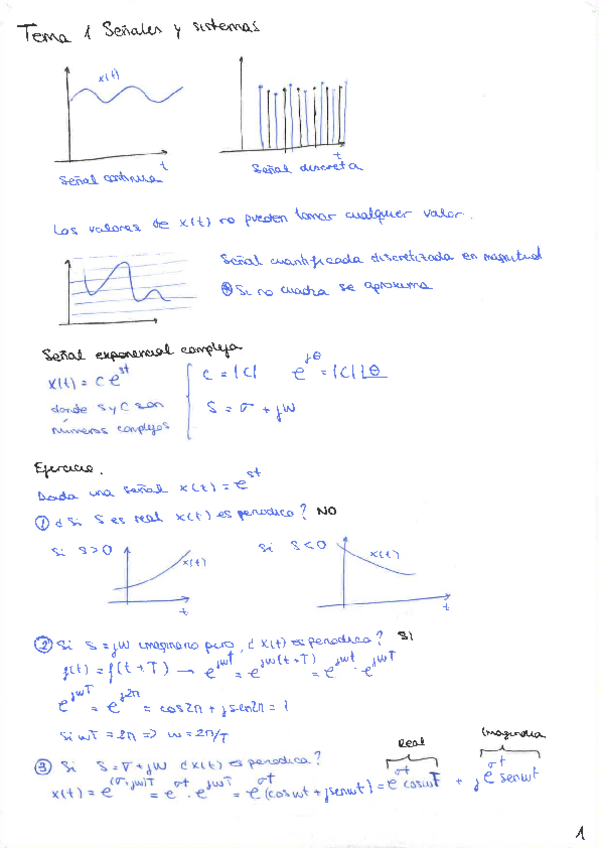 Tema 1 Señales y sistemas
x(t)
t
t
Señal continua
Señal discreta
Los valores de x(t) no pueden tomar cualquier valor.
Señal cuantificada discretizada en magnitud
* Si no cuadra se aproxima
Señal exponencial compleja
x(t) = C e^st
C = |C| e^jθ = |C| |θ
donde S y C son
S = σ + jω
números complejos
Ejercicio.
Dada una señal x(t) = e^st
① ¿Si S es real x(t) es periodica? NO
Si S>0
x(t)
t
Si S<0
x(t)
t
② Si S = jω imaginario puro, ¿x(t) es periodica? Si
f(t) = f(t+T) → e^jωt = e^jω(t+T) = e^jωt · e^jωT
e^jωT = e^j2π = cos2π + jsen2π = 1
Si ωT = 2π => ω = 2π/T
Real
Imaginaria
③ Si S = σ + jω ¿x(t) es periodica?
x(t) = e^(σ+jω)T = e^σt · e^jωT = e^σt (cosωt + jsenωt) = e^σt cosωT + j e^σt senωt
1